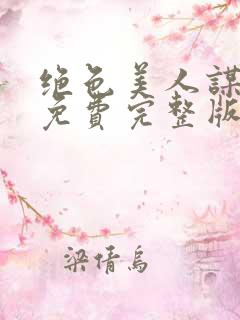 绝色美人謀
免費完整版
梁情烏